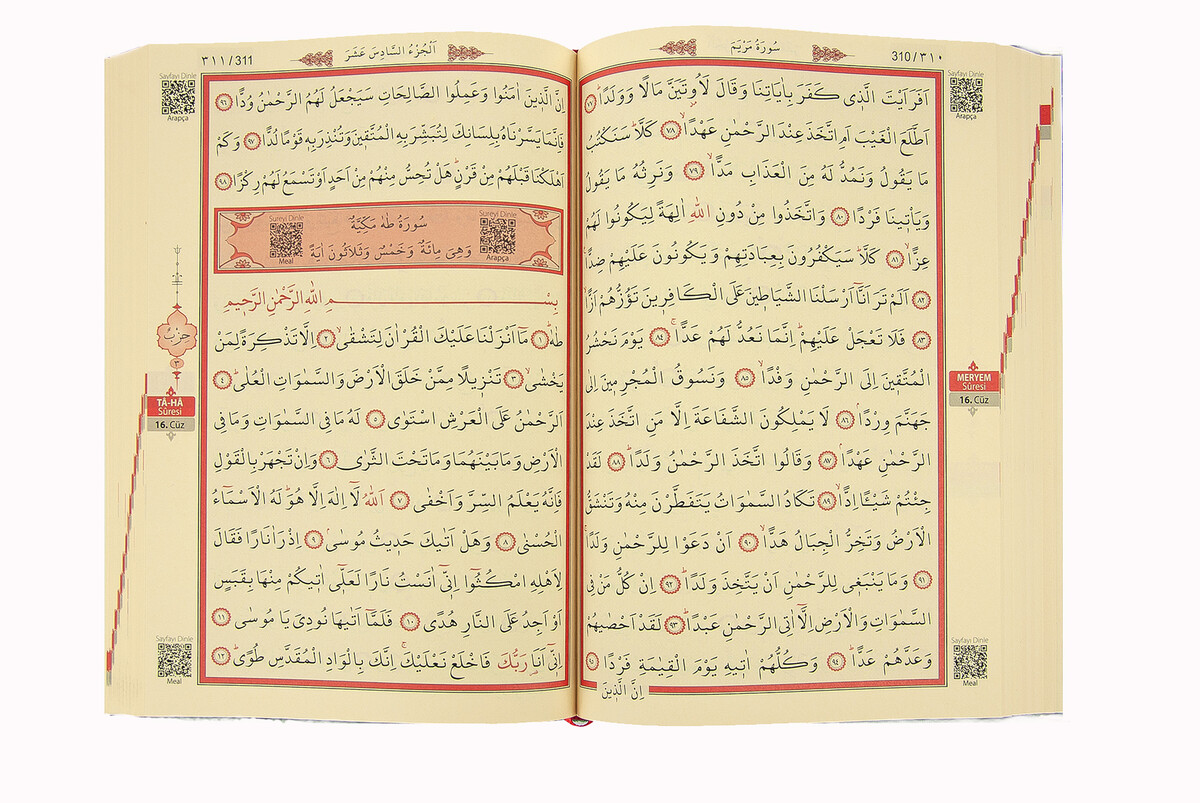 310/٣١٠
سُورَةُ مَرْيَمَ
Sayfayı Dinle
Arapça
اَفَرَاَيْتَ الَّذ۪ي كَفَرَ بِاٰيَاتِنَا وَقَالَ لَاُو۫تَيَنَّ مَالًا وَوَلَدًاۜ ﴿٧٧﴾
اَطَّلَعَ الْغَيْبَ اَمِ اتَّخَذَ عِنْدَ الرَّحْمٰنِ عَهْدًاۙ ﴿٧٨﴾ كَلَّاۜ سَنَكْتُبُ
مَا يَقُولُ وَنَمُدُّ لَهُ مِنَ الْعَذَابِ مَدًّاۙ ﴿٧٩﴾ وَنَرِثُهُ مَا يَقُولُ
وَيَأْت۪ينَا فَرْدًا ﴿٨٠﴾ وَاتَّخَذُوا مِنْ دُونِ اللّٰهِ اٰلِهَةً لِيَكُونُوا لَهُمْ
عِزًّاۙ ﴿٨١﴾ كَلَّاۜ سَيَكْفُرُونَ بِعِبَادَتِهِمْ وَيَكُونُونَ عَلَيْهِمْ ضِدًّا۟
﴿٨٢﴾ اَلَمْ تَرَ اَنَّٓا اَرْسَلْنَا الشَّيَاط۪ينَ عَلَى الْكَافِر۪ينَ تَؤُزُّهُمْ اَزًّاۙ
﴿٨٣﴾ فَلَا تَعْجَلْ عَلَيْهِمْۜ اِنَّمَا نَعُدُّ لَهُمْ عَدًّاۚ ﴿٨٤﴾ يَوْمَ نَحْشُرُ
الْمُتَّق۪ينَ اِلَى الرَّحْمٰنِ وَفْدًاۙ ﴿٨٥﴾ وَنَسُوقُ الْمُجْرِم۪ينَ اِلٰى
جَهَنَّمَ وِرْدًاۢ ﴿٨٦﴾ لَا يَمْلِكُونَ الشَّفَاعَةَ اِلَّا مَنِ اتَّخَذَ عِنْدَ
الرَّحْمٰنِ عَهْدًاۢ ﴿٨٧﴾ وَقَالُوا اتَّخَذَ الرَّحْمٰنُ وَلَدًاۜ ﴿٨٨﴾ لَقَدْ
جِئْتُمْ شَيْـًٔا اِدًّاۙ ﴿٨٩﴾ تَكَادُ السَّمٰوَاتُ يَتَفَطَّرْنَ مِنْهُ وَتَنْشَقُّ
الْاَرْضُ وَتَخِرُّ الْجِبَالُ هَدًّاۙ ﴿٩٠﴾ اَنْ دَعَوْا لِلرَّحْمٰنِ وَلَدًاۚ
﴿٩١﴾ وَمَا يَنْبَغ۪ي لِلرَّحْمٰنِ اَنْ يَتَّخِذَ وَلَدًاۜ ﴿٩٢﴾ اِنْ كُلُّ مَنْ فِي
السَّمٰوَاتِ وَالْاَرْضِ اِلَّٓا اٰتِي الرَّحْمٰنِ عَبْدًاۜ ﴿٩٣﴾ لَقَدْ اَحْصٰيهُمْ
وَعَدَّهُمْ عَدًّاۜ ﴿٩٤﴾ وَكُلُّهُمْ اٰت۪يهِ يَوْمَ الْقِيٰمَةِ فَرْدًا ﴿٩٥﴾
اِنَّ الَّذ۪ينَ
MERYEM
Sûresi
16. Cüz
Sayfayı Dinle
Meal
اَلْجُزْءُ السَّادِسَ عَشَرَ
٣١١/311
Sayfayı Dinle
Arapça
اِنَّ الَّذ۪ينَ اٰمَنُوا وَعَمِلُوا الصَّالِحَاتِ سَيَجْعَلُ لَهُمُ الرَّحْمٰنُ وُدًّا ﴿٩٦﴾
فَاِنَّمَا يَسَّرْنَاهُ بِلِسَانِكَ لِتُبَشِّرَ بِهِ الْمُتَّق۪ينَ وَتُنْذِرَ بِه۪ قَوْمًا لُدًّا ﴿٩٧﴾ وَكَمْ
اَهْلَكْنَا قَبْلَهُمْ مِنْ قَرْنٍۜ هَلْ تُحِسُّ مِنْهُمْ مِنْ اَحَدٍ اَوْ تَسْمَعُ لَهُمْ رِكْزًا ﴿٩٨﴾
Sureyi Dinle
Arapça
سُورَةُ طٰهٰ مَكِّيَّةٌ
وَهِيَ مِائَةٌ وَخَمْسٌ وَثَلَاثُونَ اٰيَةً
Sureyi Dinle
Meal
بِسْمِ اللّٰهِ الرَّحْمٰنِ الرَّح۪يمِ
طٰهٰۜ ﴿١﴾ مَٓا اَنْزَلْنَا عَلَيْكَ الْقُرْاٰنَ لِتَشْقٰىۙ ﴿٢﴾ اِلَّا تَذْكِرَةً لِمَنْ
يَخْشٰىۙ ﴿٣﴾ تَنْز۪يلًا مِمَّنْ خَلَقَ الْاَرْضَ وَالسَّمٰوَاتِ الْعُلٰىۜ ﴿٤﴾
اَلرَّحْمٰنُ عَلَى الْعَرْشِ اسْتَوٰى ﴿٥﴾ لَهُ مَا فِي السَّمٰوَاتِ وَمَا فِي
الْاَرْضِ وَمَا بَيْنَهُمَا وَمَا تَحْتَ الثَّرٰى ﴿٦﴾ وَاِنْ تَجْهَرْ بِالْقَوْلِ
فَاِنَّهُ يَعْلَمُ السِّرَّ وَاَخْفٰى ﴿٧﴾ اَللّٰهُ لَٓا اِلٰهَ اِلَّا هُوَۜ لَهُ الْاَسْمَٓاءُ
الْحُسْنٰى ﴿٨﴾ وَهَلْ اَتٰيكَ حَد۪يثُ مُوسٰىۢ ﴿٩﴾ اِذْ رَاٰ نَارًا فَقَالَ
لِاَهْلِهِ امْكُثُٓوا اِنّ۪ٓي اٰنَسْتُ نَارًا لَعَلّ۪ٓي اٰت۪يكُمْ مِنْهَا بِقَبَسٍ
اَوْ اَجِدُ عَلَى النَّارِ هُدًى ﴿١٠﴾ فَلَمَّٓا اَتٰيهَا نُودِيَ يَا مُوسٰى ﴿١١﴾
اِنّ۪ٓي اَنَا۬ رَبُّكَ فَاخْلَعْ نَعْلَيْكَۚ اِنَّكَ بِالْوَادِ الْمُقَدَّسِ طُوًىۜ ﴿١٢﴾
حِزْب
٣
TÂ-HÂ
Sûresi
16. Cüz
Sayfayı Dinle
Meal